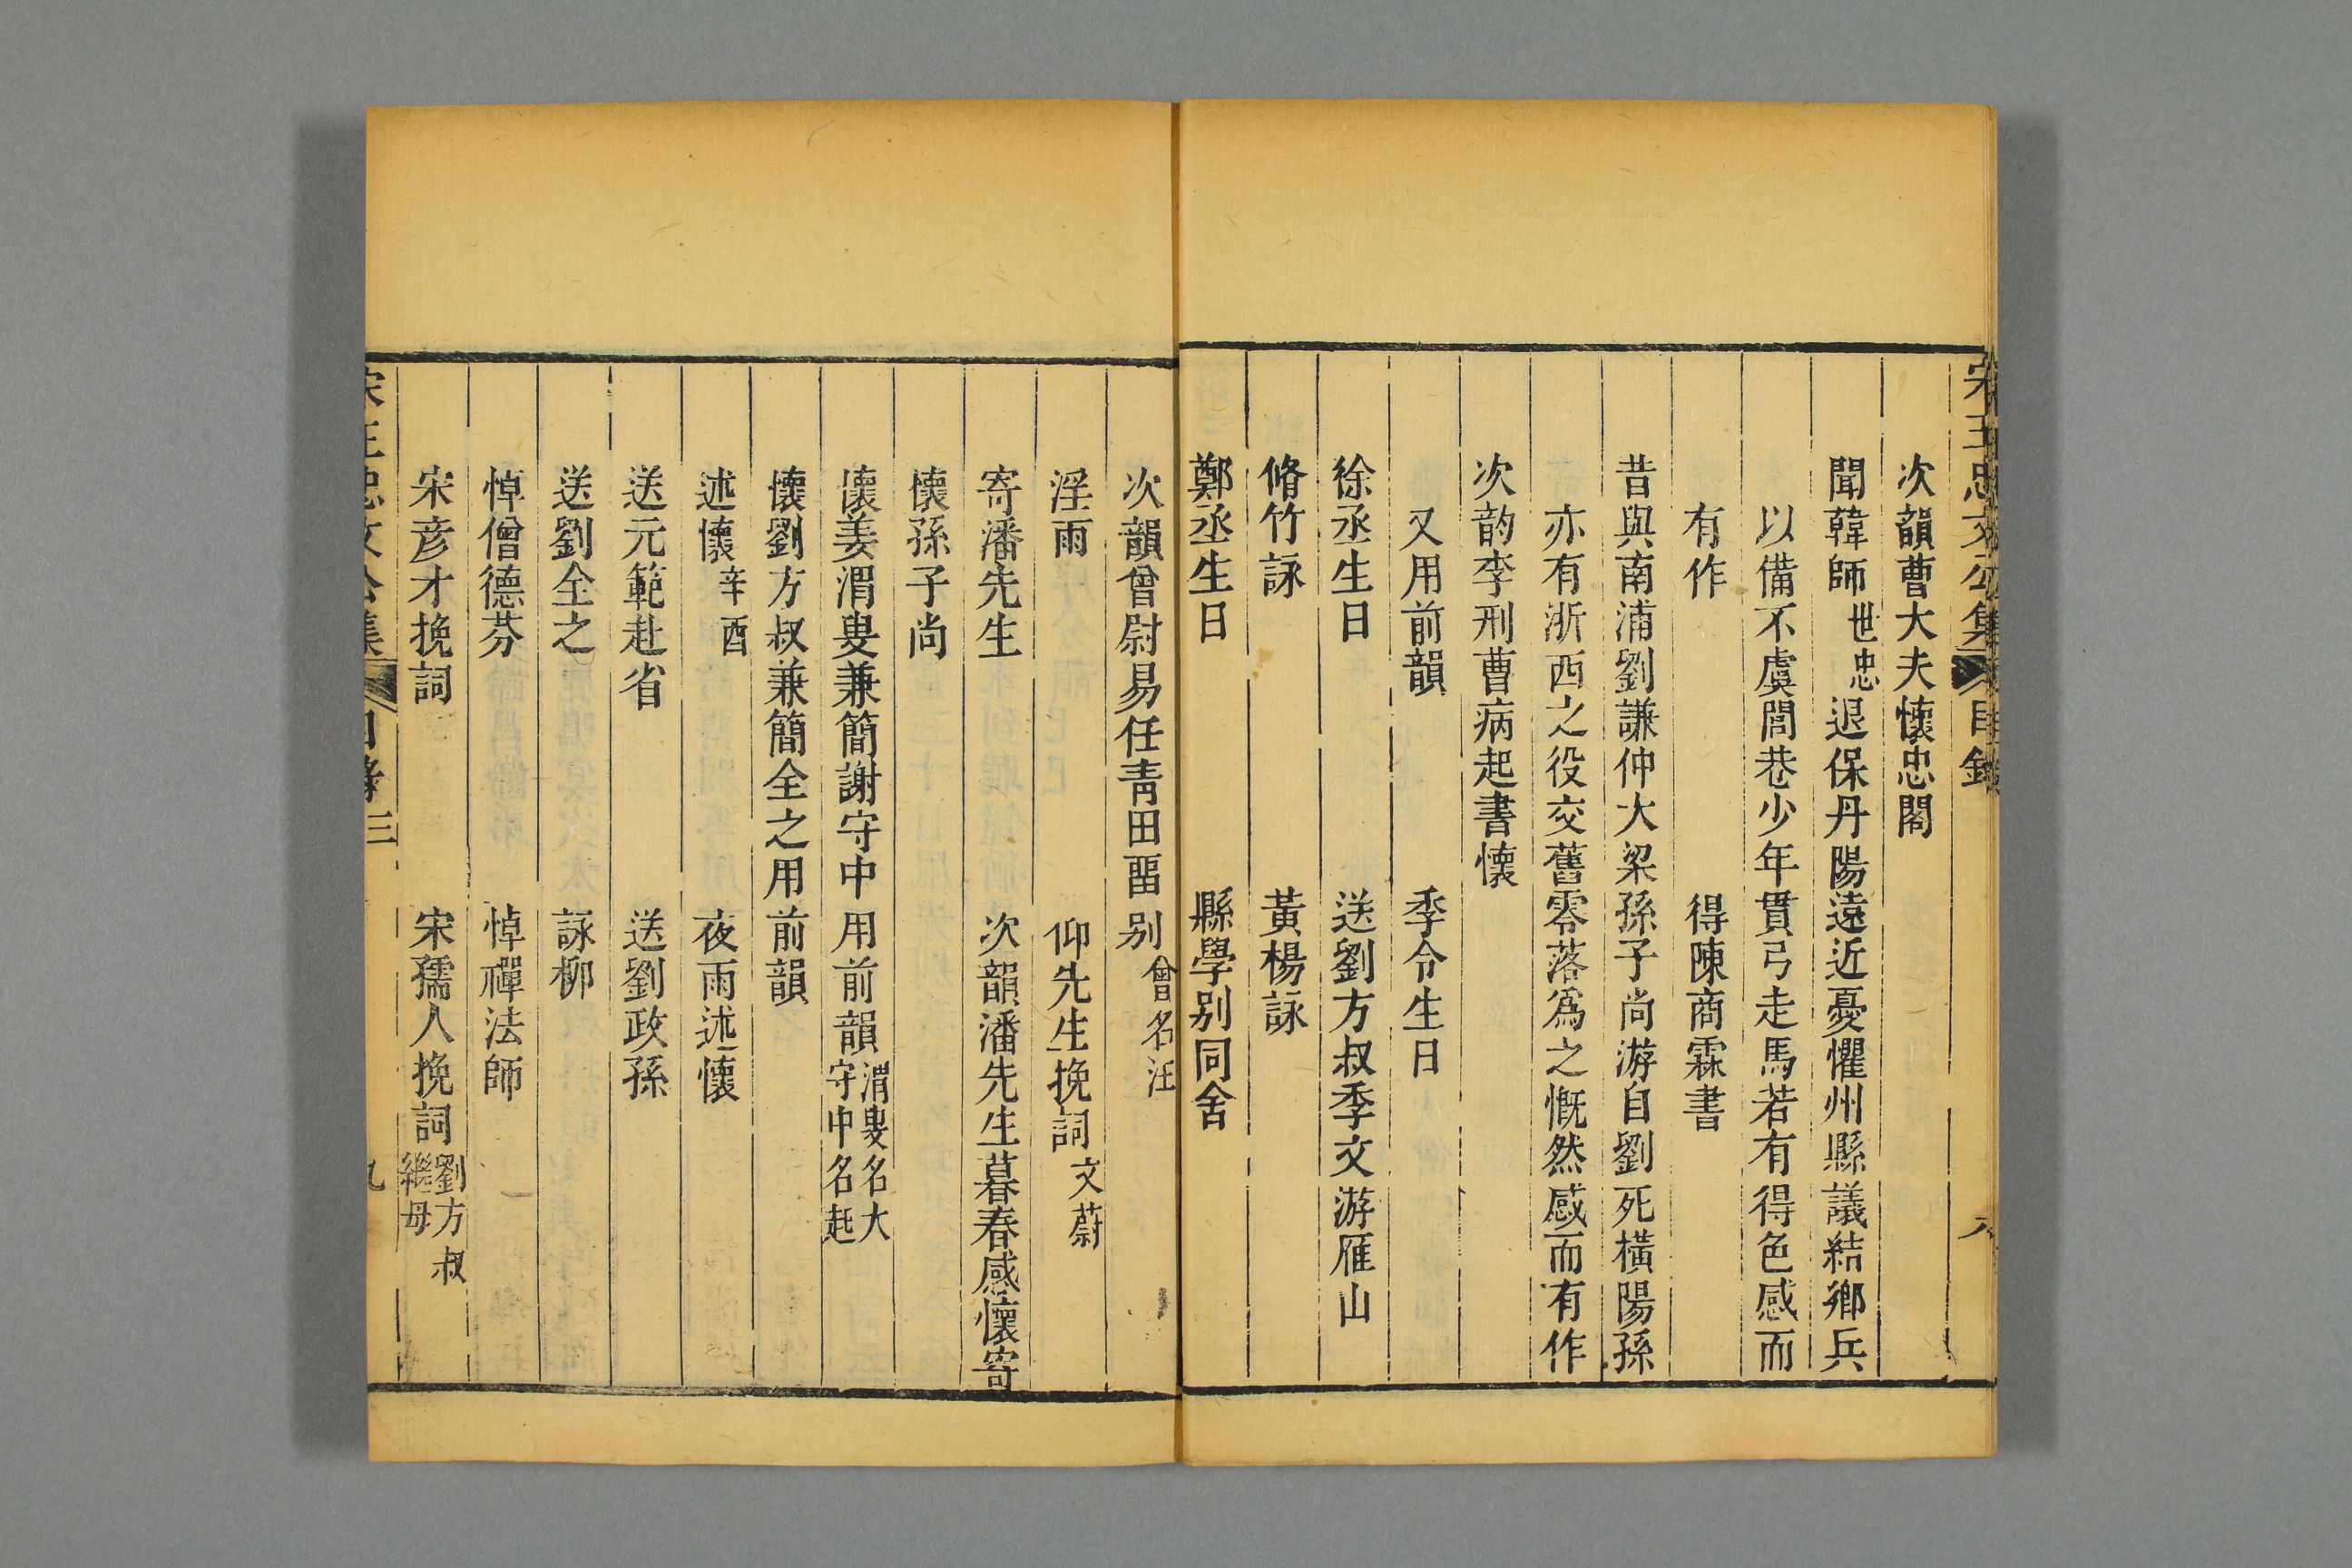 宋王忠文公集 目錄 八
次韻曹大夫懷忠閣
聞韓師世忠退保丹陽遠近憂懼州縣議結鄉兵
以備不虞閭巷少年貫弓走馬若有得色感而
有作 得陳商霖書
昔與南浦劉謙仲大梁孫子尚游自劉死橫陽孫
亦有浙西之役交舊零落爲之慨然感而有作
次韵李刑曹病起書懷
又用前韻 季令生日
徐丞生日 送劉方叔季文游雁山
脩竹詠 黃楊詠
鄭丞生日 縣學别同舍
次韻曾尉易任青田畱别曾名汪
淫雨 仰先生挽詞文蔚
寄潘先生 次韻潘先生暮春感懷寄
懷孫子尚
懷姜渭叟兼簡謝守中 用前韻渭叟名大守中名起
懷劉方叔兼簡全之用前韻
述懷辛酉 夜雨述懷
送元範赴省 送劉政孫
送劉全之 詠柳
悼僧德芬 悼禪法師
宋彦才挽詞 宋孺人挽詞劉方叔繼母
宋王忠文公集 目錄三 九